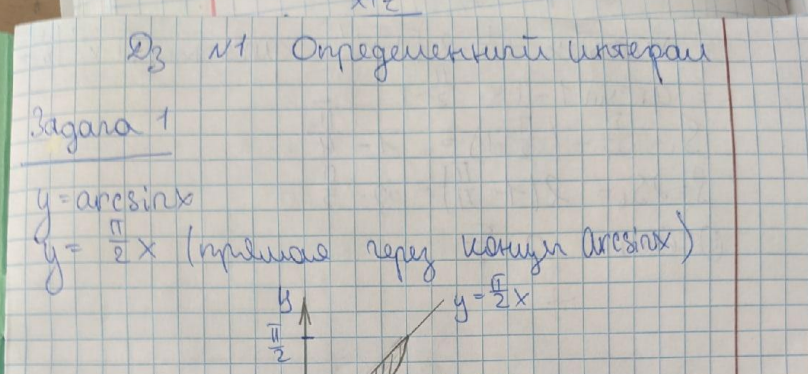 Дз №1 Определенный интерал
Задача 1
y = arcsinx
y = π/2 x (прямая через концы arcsinx)
y
y = π/2 x
π/2